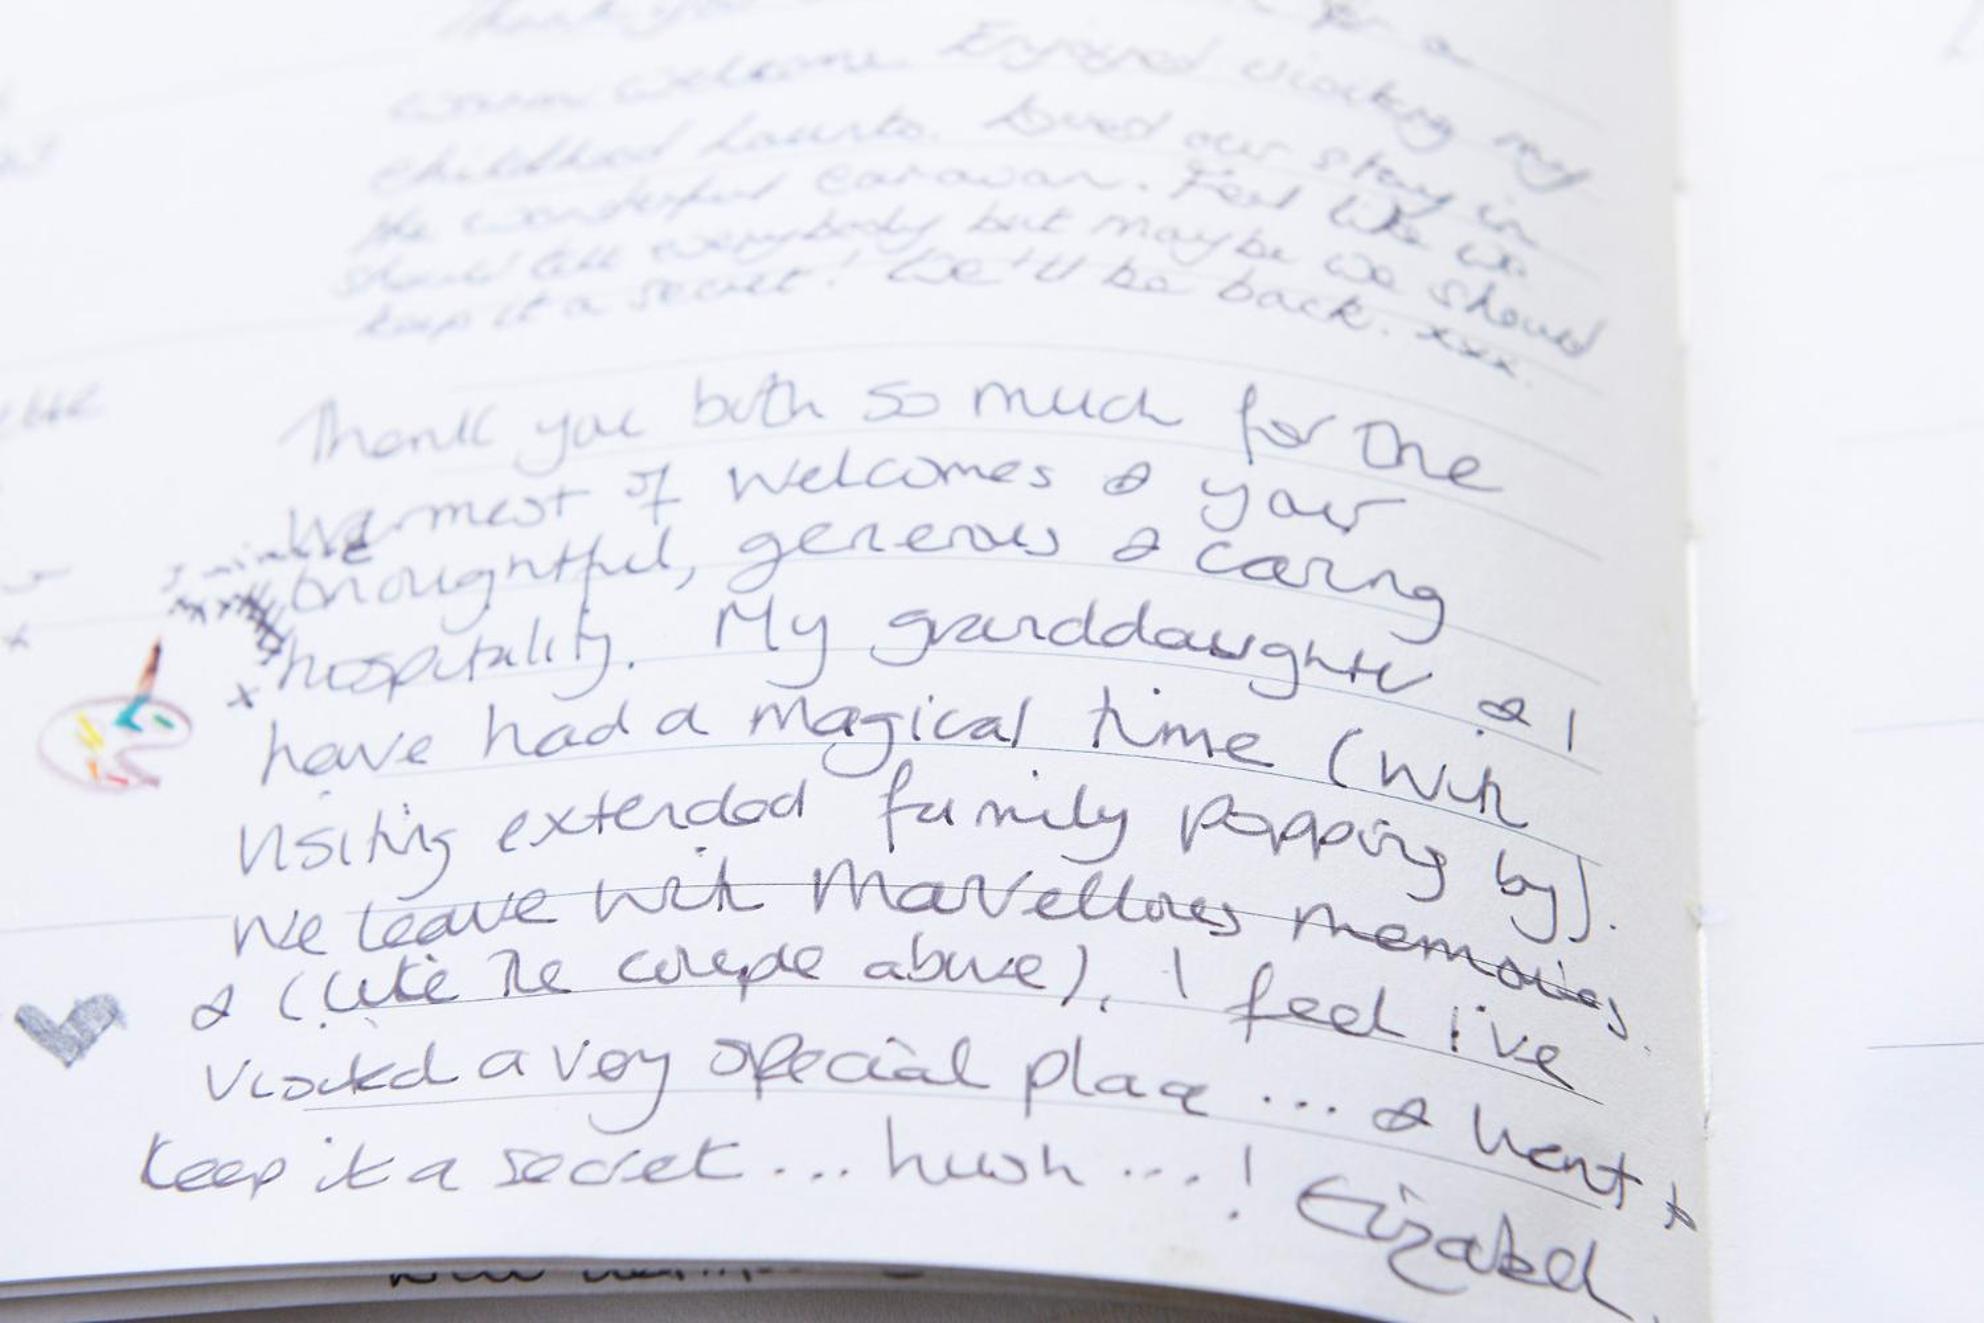 Thank you for a
warm welcome. Enjoyed visiting my
childhood haunts. Loved our stay in
the wonderful caravan. Feel like we
should tell everybody but maybe we should
keep it a secret! We'll be back. xxx.
Thank you both so much for the
warmest of welcomes & your
thoughtful, generous & caring
hospitality. My granddaughter & I
have had a magical time (with
visiting extended family popping by).
We leave with marvellous memories
& (like the couple above), I feel I've
visited a very special place ... & want to
keep it a secret ... hush ...! Elizabeth